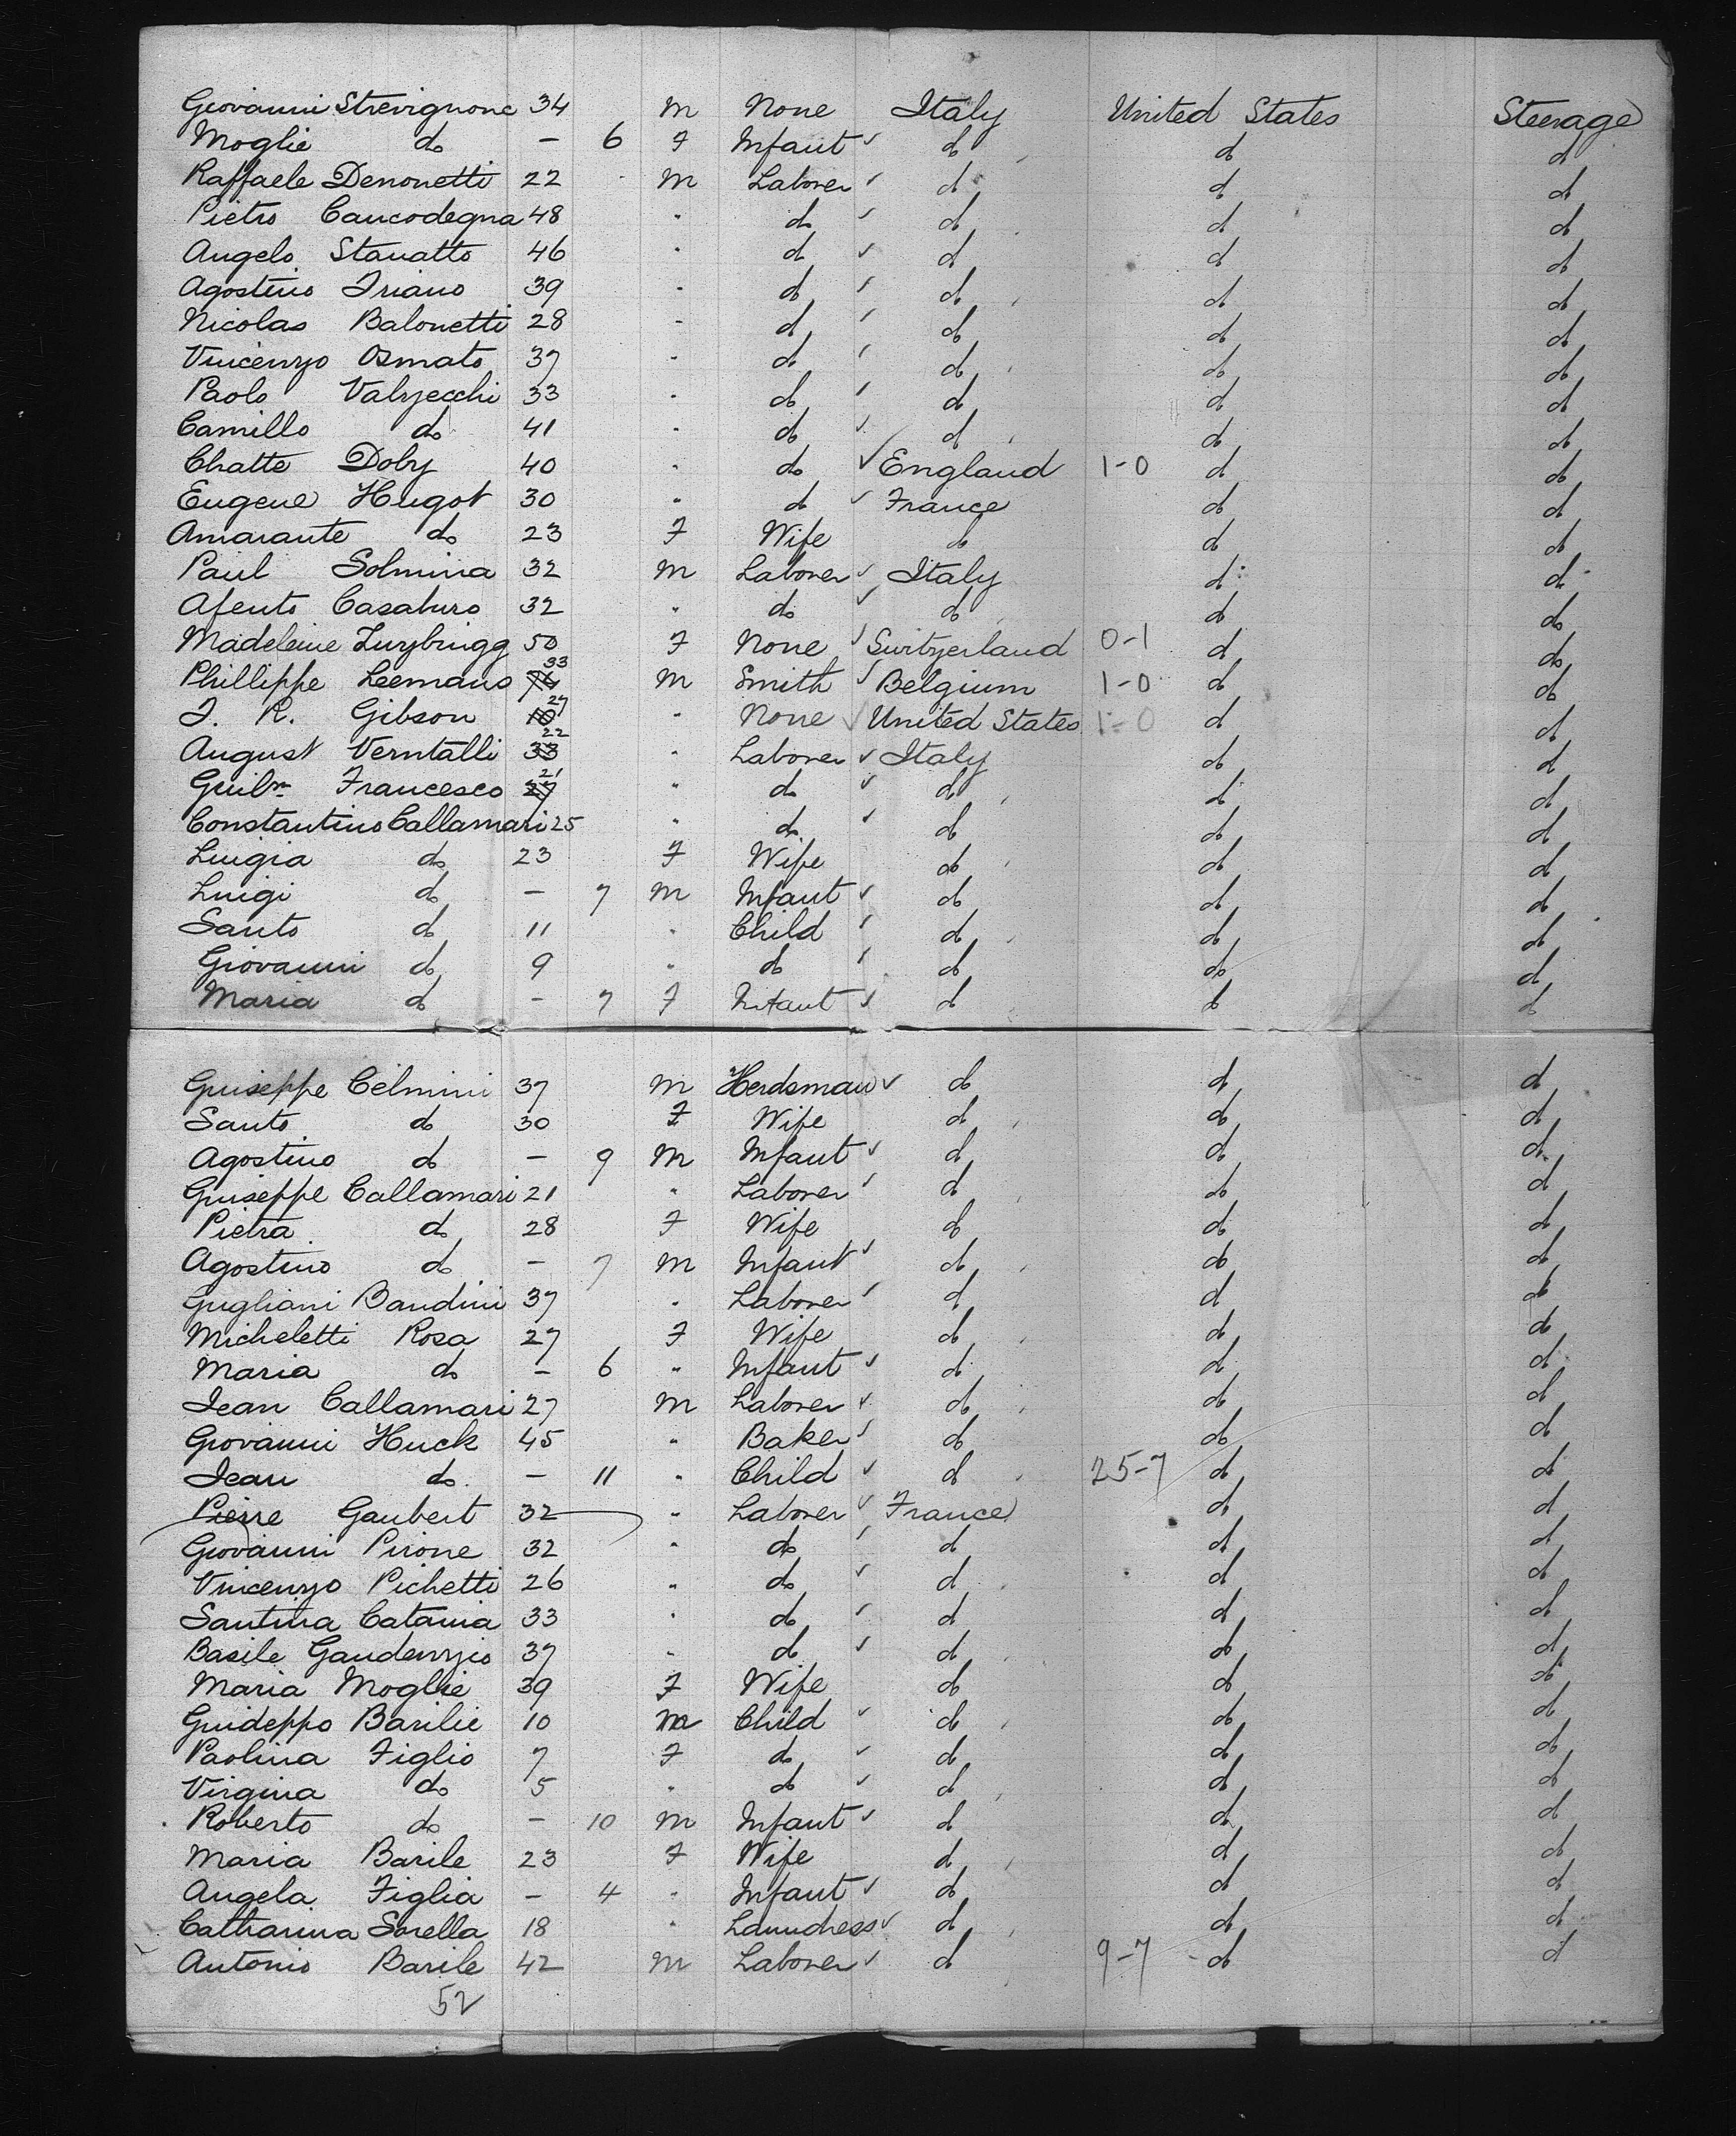 Giovanni Strevignone 34 M None Italy United States Steerage
Moglie do — 6 F Infant ✓ do do do
Raffaele Denonetti 22 M Laborer ✓ do do do
Pietro Caucodegna 48 " do ✓ do do do
Angelo Stavatto 46 " do ✓ do do do
Agostino Friano 39 " do ✓ do do do
Nicolas Balonetti 28 " do ✓ do do do
Vincenzo Osmato 37 " do ✓ do do do
Paolo Valzecchi 33 " do ✓ do do do
Camillo do 41 " do ✓ do do do
Chatte Doby 40 " do ✓ England 1-0 do do
Eugene Hugot 30 " do ✓ France do do
Amarante do 23 F Wife do do do
Paul Solmina 32 M Laborer ✓ Italy do do
Afento Casaburo 32 " do ✓ do do do
Madeleine Zurzbrugg 50 F None ✓ Switzerland 0-1 do do
Phillippe Leemans 33 M Smith ✓ Belgium 1-0 do do
J. R. Gibson 27 " None ✓ United States 1-0 do do
August Verntalli 22 " Laborer ✓ Italy do do
Guilm Francesco 21 " do ✓ do do do
Constantino Callamari 25 " do ✓ do do do
Luigia do 23 F Wife do do do
Luigi do — 7 M Infant ✓ do do do
Santo do 11 " Child ✓ do do do
Giovanni do 9 " do ✓ do do do
Maria do — 7 F Infant ✓ do do do
Guiseppe Celmini 37 M Herdsman ✓ do do do
Santo do 30 F Wife do do do
Agostino do — 9 M Infant ✓ do do do
Guiseppe Callamari 21 " Laborer ✓ do do do
Pietra do 28 F Wife do do do
Agostino do — 7 M Infant ✓ do do do
Gugliani Baudini 37 " Laborer ✓ do do do
Micheletti Rosa 27 F Wife do do do
Maria do — 6 " Infant ✓ do do do
Jean Callamari 27 M Laborer ✓ do do do
Giovanni Huck 45 " Baker ✓ do do do
Jean do — 11 " Child ✓ do 25-7 do do
Pierre Gaubert 32 " Laborer ✓ France do do
Giovanni Pirone 32 " do ✓ do do do
Vincenzo Pichetti 26 " do ✓ do do do
Santina Catania 33 " do ✓ do do do
Basile Gaudenzio 37 " do ✓ do do do
Maria Moglie 39 F Wife do do do
Guideppo Barilie 10 M Child ✓ do do do
Paolina Figlio 7 F do ✓ do do do
Virgina do 5 " do ✓ do do do
Roberto do — 10 M Infant ✓ do do do
Maria Barile 23 F Wife do do do
Angela Figlia — 4 " Infant ✓ do do do
Catharina Sorella 18 " Laundress ✓ do do do
Antonio Barile 42 M Laborer ✓ do 9-7 do do
52